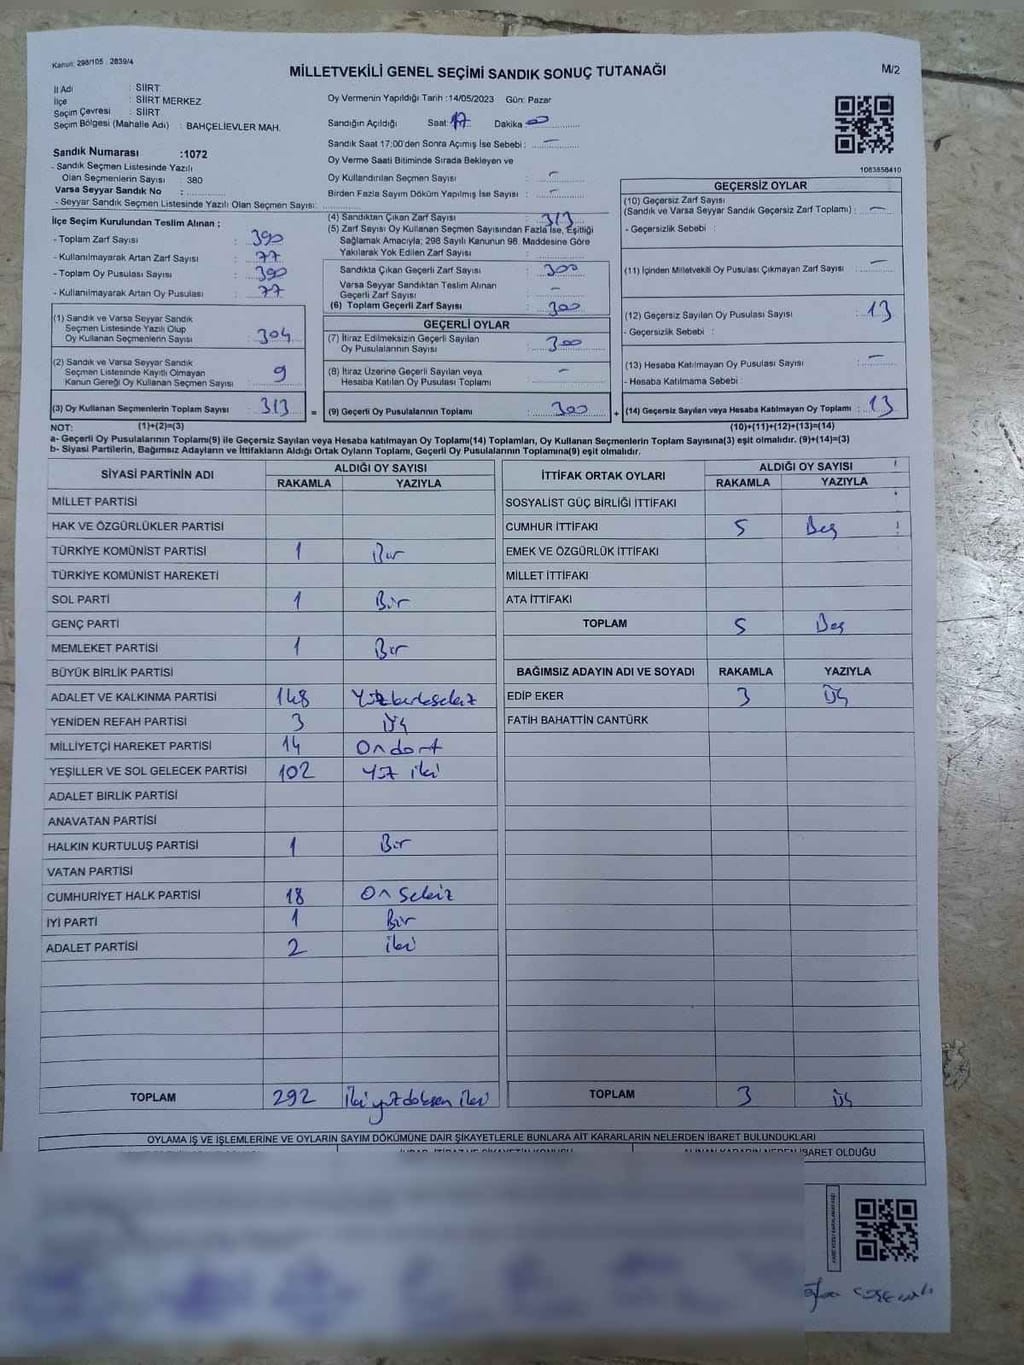 Kanun: 298/105 . 2839/4
MİLLETVEKİLİ GENEL SEÇİMİ SANDIK SONUÇ TUTANAĞI
M/2
İl Adı : SİİRT
İlçe : SİİRT MERKEZ
Seçim Çevresi : SİİRT
Seçim Bölgesi (Mahalle Adı) : BAHÇELİEVLER MAH.
Oy Vermenin Yapıldığı Tarih :14/05/2023 Gün: Pazar
Sandığın Açıldığı Saat: 17 Dakika 00
Sandık Saat 17:00'den Sonra Açımış İse Sebebi : –
Oy Verme Saati Bitiminde Sırada Bekleyen ve
Oy Kullandırılan Seçmen Sayısı : –
Birden Fazla Sayım Döküm Yapılmış İse Sayısı : –
1083858410
Sandık Numarası :1072
- Sandık Seçmen Listesinde Yazılı
Olan Seçmenlerin Sayısı : 380
Varsa Seyyar Sandık No :
- Seyyar Sandık Seçmen Listesinde Yazılı Olan Seçmen Sayısı:
İlçe Seçim Kurulundan Teslim Alınan ;
- Toplam Zarf Sayısı : 390
- Kullanılmayarak Artan Zarf Sayısı : 77
- Toplam Oy Pusulası Sayısı : 390
- Kullanılmayarak Artan Oy Pusulası : 77
(1) Sandık ve Varsa Seyyar Sandık
Seçmen Listesinde Yazılı Olup
Oy Kullanan Seçmenlerin Sayısı : 304
(2) Sandık ve Varsa Seyyar Sandık
Seçmen Listesinde Kayıtlı Olmayan
Kanun Gereği Oy Kullanan Seçmen Sayısı : 9
(3) Oy Kullanan Seçmenlerin Toplam Sayısı : 313 =
(1)+(2)=(3)
(4) Sandıktan Çıkan Zarf Sayısı : 313
(5) Zarf Sayısı Oy Kullanan Seçmen Sayısından Fazla İse, Eşitliği
Sağlamak Amacıyla; 298 Sayılı Kanunun 98. Maddesine Göre
Yakılarak Yok Edilen Zarf Sayısı :
Sandıkta Çıkan Geçerli Zarf Sayısı : 300
Varsa Seyyar Sandıktan Teslim Alınan
Geçerli Zarf Sayısı : –
(6) Toplam Geçerli Zarf Sayısı : 300
GEÇERLİ OYLAR
(7) İtiraz Edilmeksizin Geçerli Sayılan
Oy Pusulalarının Sayısı : 300
(8) İtiraz Üzerine Geçerli Sayılan veya
Hesaba Katılan Oy Pusulası Toplamı : –
(9) Geçerli Oy Pusulalarının Toplamı : 300 +
GEÇERSİZ OYLAR
(10) Geçersiz Zarf Sayısı
(Sandık ve Varsa Seyyar Sandık Geçersiz Zarf Toplamı) : –
- Geçersizlik Sebebi :
(11) İçinden Milletvekili Oy Pusulası Çıkmayan Zarf Sayısı : –
(12) Geçersiz Sayılan Oy Pusulası Sayısı : 13
- Geçersizlik Sebebi :
(13) Hesaba Katılmayan Oy Pusulası Sayısı : –
- Hesaba Katılmama Sebebi :
(14) Geçersiz Sayılan veya Hesaba Katılmayan Oy Toplamı : 13
(10)+(11)+(12)+(13)=(14)
NOT:
a- Geçerli Oy Pusulalarının Toplamı(9) ile Geçersiz Sayılan veya Hesaba katılmayan Oy Toplamı(14) Toplamları, Oy Kullanan Seçmenlerin Toplam Sayısına(3) eşit olmalıdır. (9)+(14)=(3)
b- Siyasi Partilerin, Bağımsız Adayların ve İttifakların Aldığı Ortak Oyların Toplamı, Geçerli Oy Pusulalarının Toplamına(9) eşit olmalıdır.
SİYASİ PARTİNİN ADI
ALDIĞI OY SAYISI
RAKAMLA YAZIYLA
MİLLET PARTİSİ
HAK VE ÖZGÜRLÜKLER PARTİSİ
TÜRKİYE KOMÜNİST PARTİSİ 1 Bir
TÜRKİYE KOMÜNİST HAREKETİ
SOL PARTİ 1 Bir
GENÇ PARTİ
MEMLEKET PARTİSİ 1 Bir
BÜYÜK BİRLİK PARTİSİ
ADALET VE KALKINMA PARTİSİ 148 Yüzkırksekiz
YENİDEN REFAH PARTİSİ 3 Üç
MİLLİYETÇİ HAREKET PARTİSİ 14 On dört
YEŞİLLER VE SOL GELECEK PARTİSİ 102 Yüz iki
ADALET BİRLİK PARTİSİ
ANAVATAN PARTİSİ
HALKIN KURTULUŞ PARTİSİ 1 Bir
VATAN PARTİSİ
CUMHURİYET HALK PARTİSİ 18 On Sekiz
İYİ PARTİ 1 Bir
ADALET PARTİSİ 2 iki
TOPLAM 292 iki yüz doksan iki
İTTİFAK ORTAK OYLARI
ALDIĞI OY SAYISI
RAKAMLA YAZIYLA
SOSYALİST GÜÇ BİRLİĞİ İTTİFAKI
CUMHUR İTTİFAKI 5 Beş
EMEK VE ÖZGÜRLÜK İTTİFAKI
MİLLET İTTİFAKI
ATA İTTİFAKI
TOPLAM 5 Beş
BAĞIMSIZ ADAYIN ADI VE SOYADI RAKAMLA YAZIYLA
EDİP EKER 3 Üç
FATİH BAHATTİN CANTÜRK
TOPLAM 3 üç
OYLAMA İŞ VE İŞLEMLERİNE VE OYLARIN SAYIM DÖKÜMÜNE DAİR ŞİKAYETLERLE BUNLARA AİT KARARLARIN NELERDEN İBARET BULUNDUKLARI
İBARET OLDUĞU